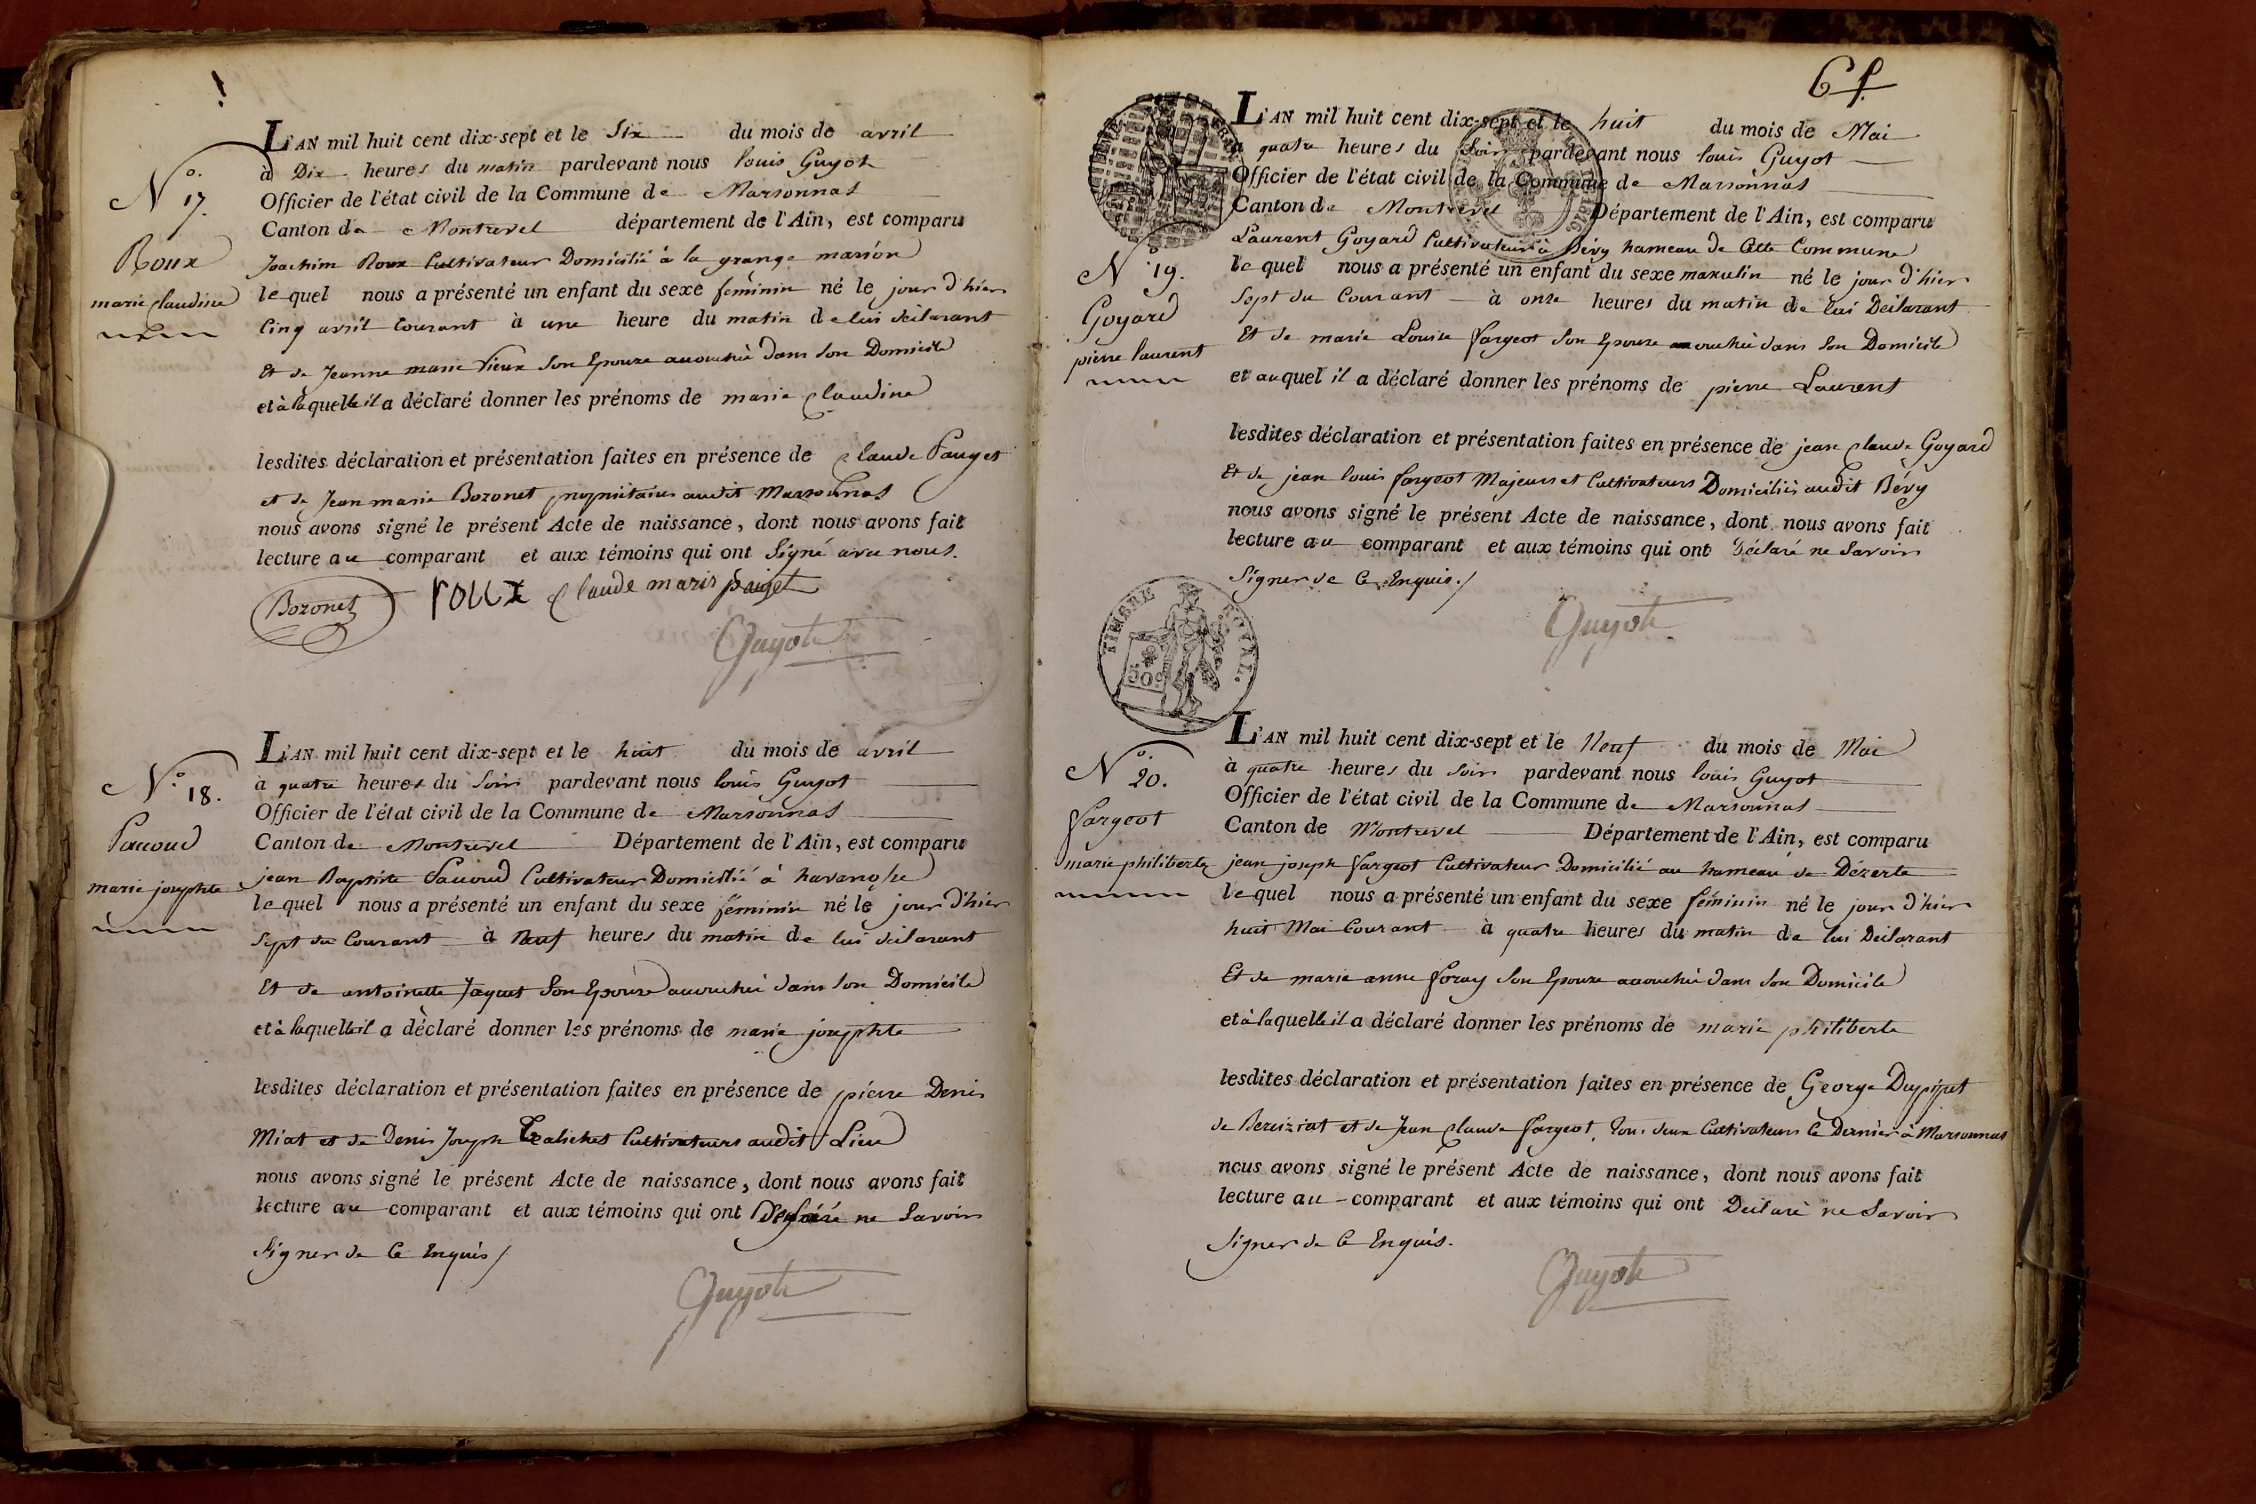 N° 17.
Roux
marie claudine
L'AN mil huit cent dix-sept et le Six du mois de avril
à Dix heures du matin pardevant nous louis Guyot
Officier de l'état civil de la Commune de Marsonnas
Canton de Montrevel département de l'Ain, est comparu
Joachim Roux Cultivateur Domicilié à la grange marion
lequel nous a présenté un enfant du sexe féminin né le jour d'hier
Cinq avril Courant à une heure du matin de lui déclarant
Et de Jeanne marie Vieux Son Epouse accouchée dans son Domicile
et à laquelle il a déclaré donner les prénoms de marie claudine
lesdites déclaration et présentation faites en présence de claude Pauget
et de Jean marie Bozonet propriétaires audit Marsonnas
nous avons signé le présent Acte de naissance, dont nous avons fait
lecture au comparant et aux témoins qui ont Signé avec nous.
Bozonet roux claude marie pauget
Guyot
N° 18.
Pauoud
marie josephte
L'AN mil huit cent dix-sept et le huit du mois de avril
à quatre heures du Soir pardevant nous louis Guyot
Officier de l'état civil de la Commune de Marsonnas
Canton de Montrevel Département de l'Ain, est comparu
jean Baptiste Pauoud Cultivateur Domicilié à
lequel nous a présenté un enfant du sexe féminin né le jour d'hier
Sept du Courant à Neuf heures du matin de lui déclarant
Et de antoinette Jaquet Son Epouse accouchée dans son Domicile
et à laquelle il a déclaré donner les prénoms de marie josephte
lesdites déclaration et présentation faites en présence de pierre Denis
Miat et de Denis Joseph Cultivateurs audit Lieu
nous avons signé le présent Acte de naissance, dont nous avons fait
lecture au comparant et aux témoins qui ont Déclaré ne Savoir
Signer de Ce Enquis
Guyot
6 f.
TIMBRE ROYAL.
50c
N° 19.
Goyard
pierre laurent
L'AN mil huit cent dix-sept et le huit du mois de Mai
à quatre heures du Soir pardevant nous louis Guyot
Officier de l'état civil de la Commune de Marsonnas
Canton de Montrevel Département de l'Ain, est comparu
Laurent Goyard Cultivateur à Bévy hameau de Cette Commune
lequel nous a présenté un enfant du sexe masculin né le jour d'hier
Sept du Courant à onze heures du matin de lui Déclarant
Et de marie Louise fargeot Son Epouse accouchée dans Son Domicile
et auquel il a déclaré donner les prénoms de pierre Laurent
lesdites déclaration et présentation faites en présence de jean claude Goyard
Et de jean louis fargeot Majeurs et Cultivateurs Domiciliés audit Bévy
nous avons signé le présent Acte de naissance, dont nous avons fait
lecture au comparant et aux témoins qui ont Déclaré ne Savoir
Signer de Ce Enquis.
Guyot
N° 20.
fargeot
marie philiberte
L'AN mil huit cent dix-sept et le Neuf du mois de Mai
à quatre heures du Soir pardevant nous louis Guyot
Officier de l'état civil de la Commune de Marsonnas
Canton de Montrevel Département de l'Ain, est comparu
jean joseph fargeot Cultivateur Domicilié au hameau de Dézerte
lequel nous a présenté un enfant du sexe féminin né le jour d'hier
huit Mai Courant à quatre heures du matin de lui Déclarant
Et de marie anne foray Son Epouse accouchée dans Son Domicile
et à laquelle il a déclaré donner les prénoms de marie philiberte
lesdites déclaration et présentation faites en présence de George Dupipet
de Bereiziat et de Jean claude fargeot, Tous deux Cultivateurs Ce Dernier à Marsonnas
nous avons signé le présent Acte de naissance, dont nous avons fait
lecture au comparant et aux témoins qui ont Déclaré ne Savoir
Signer de Ce Enquis.
Guyot